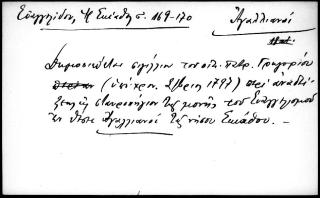 Ευαγγελίδου, Η Σκιάθος σ. 169-170 Αγαλλιανού
Δημοσιεύεται σιγίλλιον του οικ. πατρ. Γρηγορίου
(υπό χρον. 1797) περί αναδεί-
ξεως σταυροπηγίου της μονής του Ευαγγελισμού
εν θέσει Αγαλλιανού της νήσου Σκιάθου.